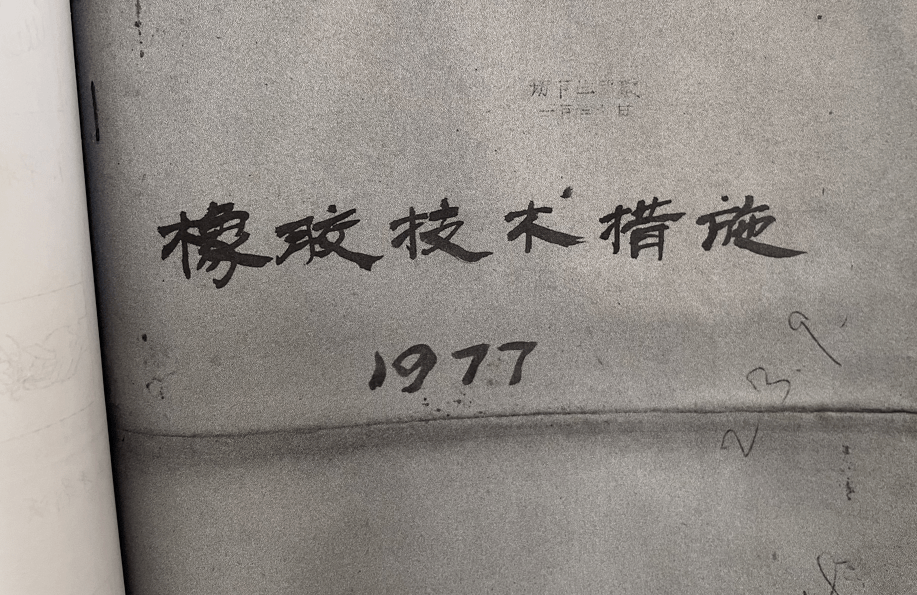 橡胶技术措施
1977
23.9.